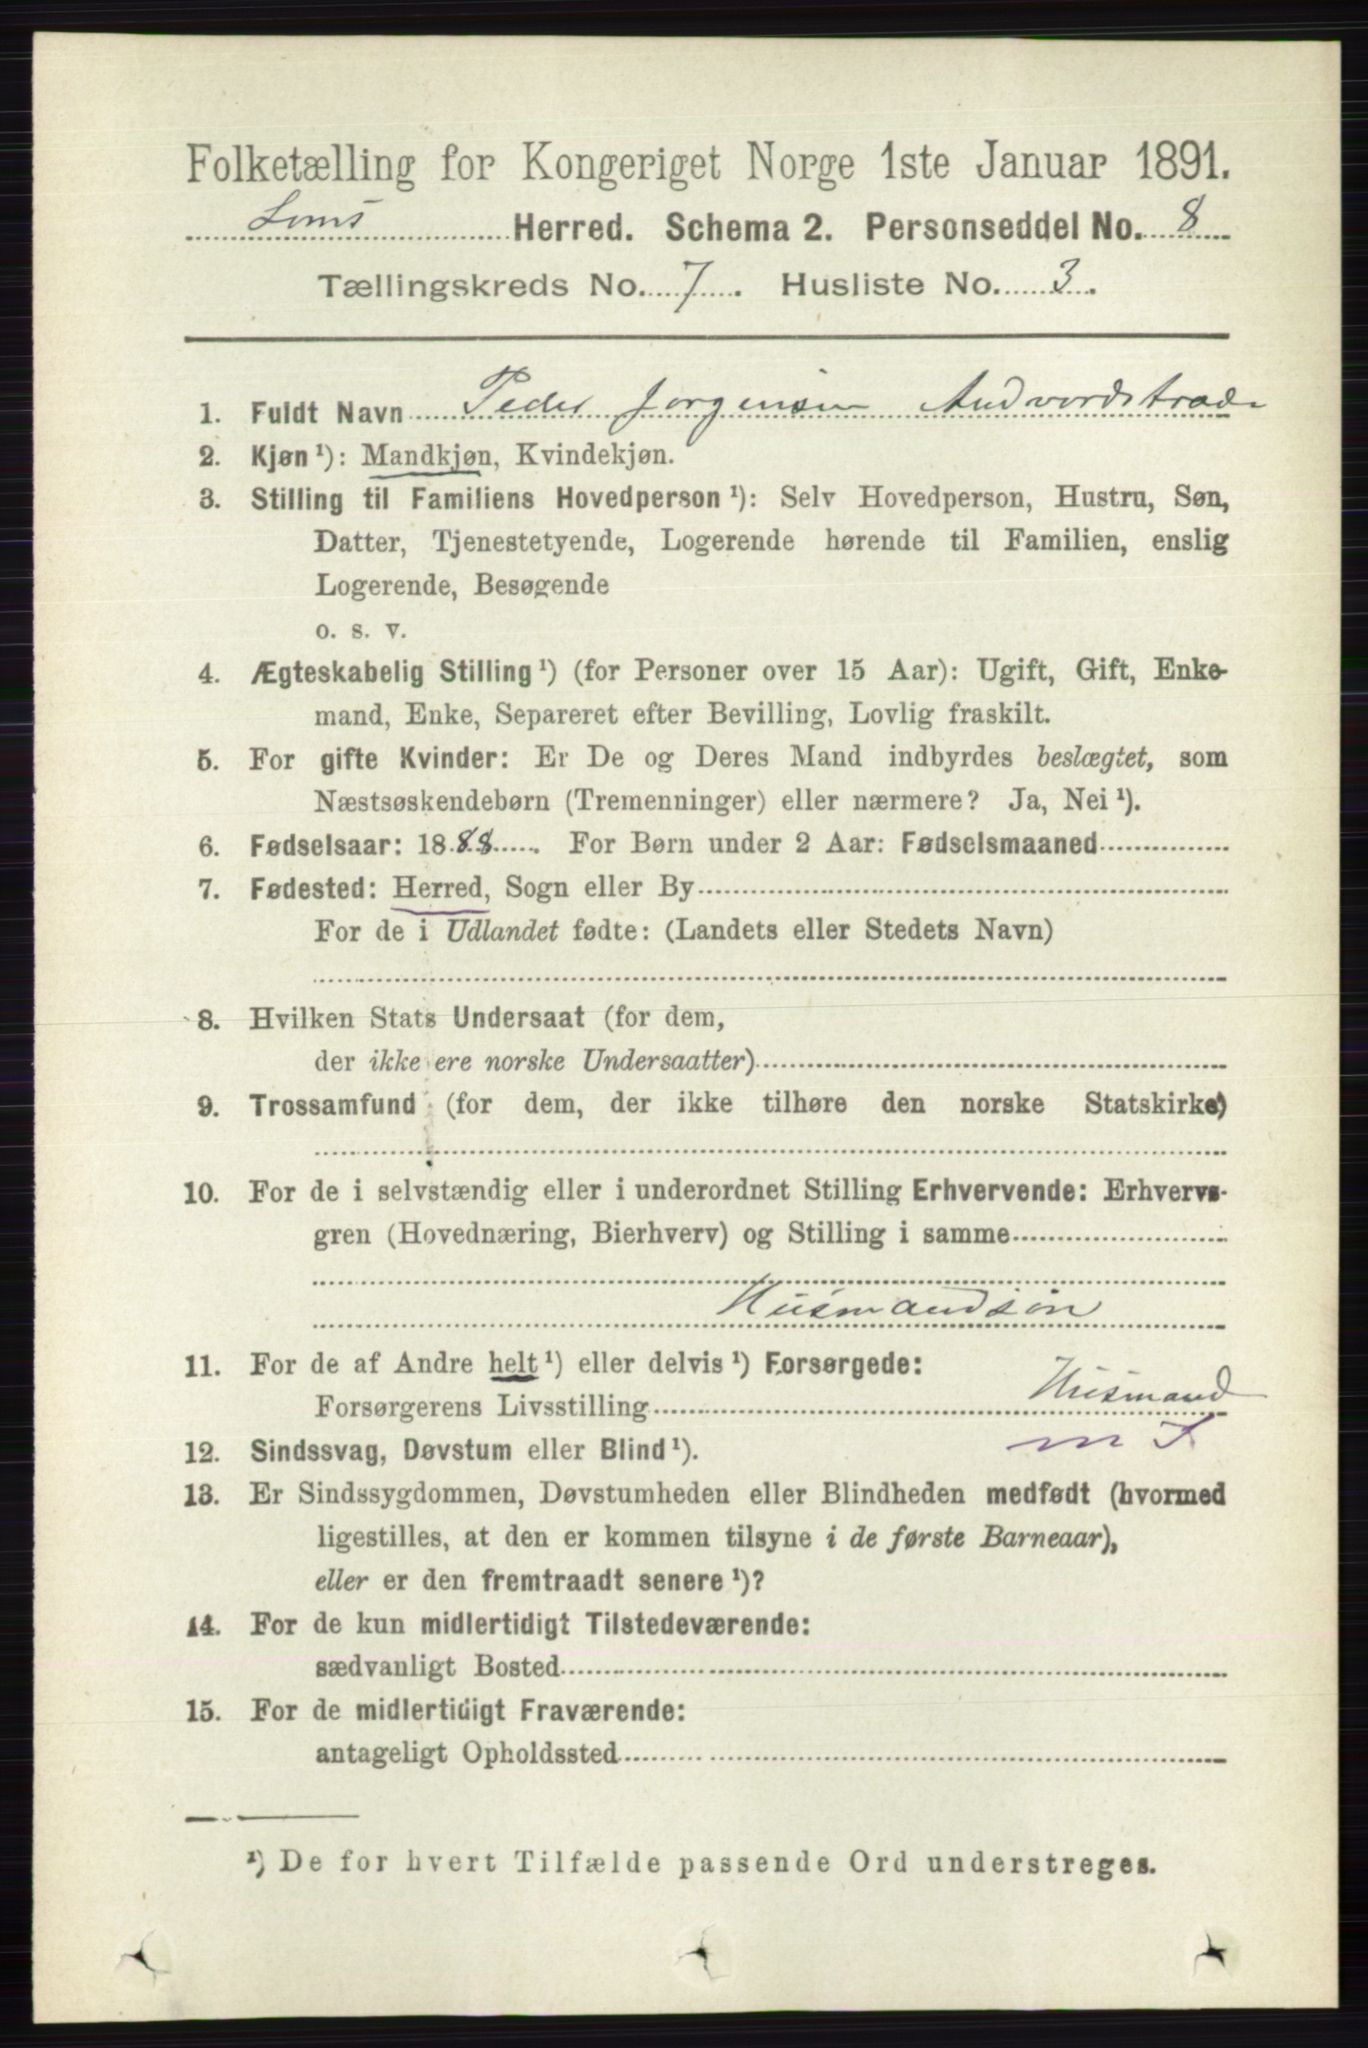 Folketælling for Kongeriget Norge 1ste Januar 1891.
Loms Herred. Schema 2. Personseddel No. 8
Tællingskreds No. 7. Husliste No. 3.
1. Fuldt Navn Peder Jorgensen Andvordstrade
2. Kjøn ¹): Mandkjøn, Kvindekjøn.
3. Stilling til Familiens Hovedperson ¹): Selv Hovedperson, Hustru, Søn,
Datter, Tjenestetyende, Logerende hørende til Familien, enslig
Logerende, Besøgende
o. s. v.
4. Ægteskabelig Stilling ¹) (for Personer over 15 Aar): Ugift, Gift, Enke-
mand, Enke, Separeret efter Bevilling, Lovlig fraskilt.
5. For gifte Kvinder: Er De og Deres Mand indbyrdes beslægtet, som
Næstsøskendebørn (Tremenninger) eller nærmere? Ja, Nei ¹).
6. Fødselsaar: 1888. For Børn under 2 Aar: Fødselsmaaned
7. Fødested: Herred, Sogn eller By
For de i Udlandet fødte: (Landets eller Stedets Navn)
8. Hvilken Stats Undersaat (for dem,
der ikke ere norske Undersaatter)
9. Trossamfund (for dem, der ikke tilhøre den norske Statskirke)
10. For de i selvstændig eller i underordnet Stilling Erhvervende: Erhvervs-
gren (Hovednæring, Bierhverv) og Stilling i samme
Husmandsøn
11. For de af Andre helt ¹) eller delvis ¹) Forsørgede:
Forsørgerens Livsstilling Husmand
12. Sindssvag, Døvstum eller Blind ¹). m J
13. Er Sindssygdommen, Døvstumheden eller Blindheden medfødt (hvormed
ligestilles, at den er kommen tilsyne i de første Barneaar),
eller er den fremtraadt senere ¹)?
14. For de kun midlertidigt Tilstedeværende:
sædvanligt Bosted
15. For de midlertidigt Fraværende:
antageligt Opholdssted
¹) De for hvert Tilfælde passende Ord understreges.